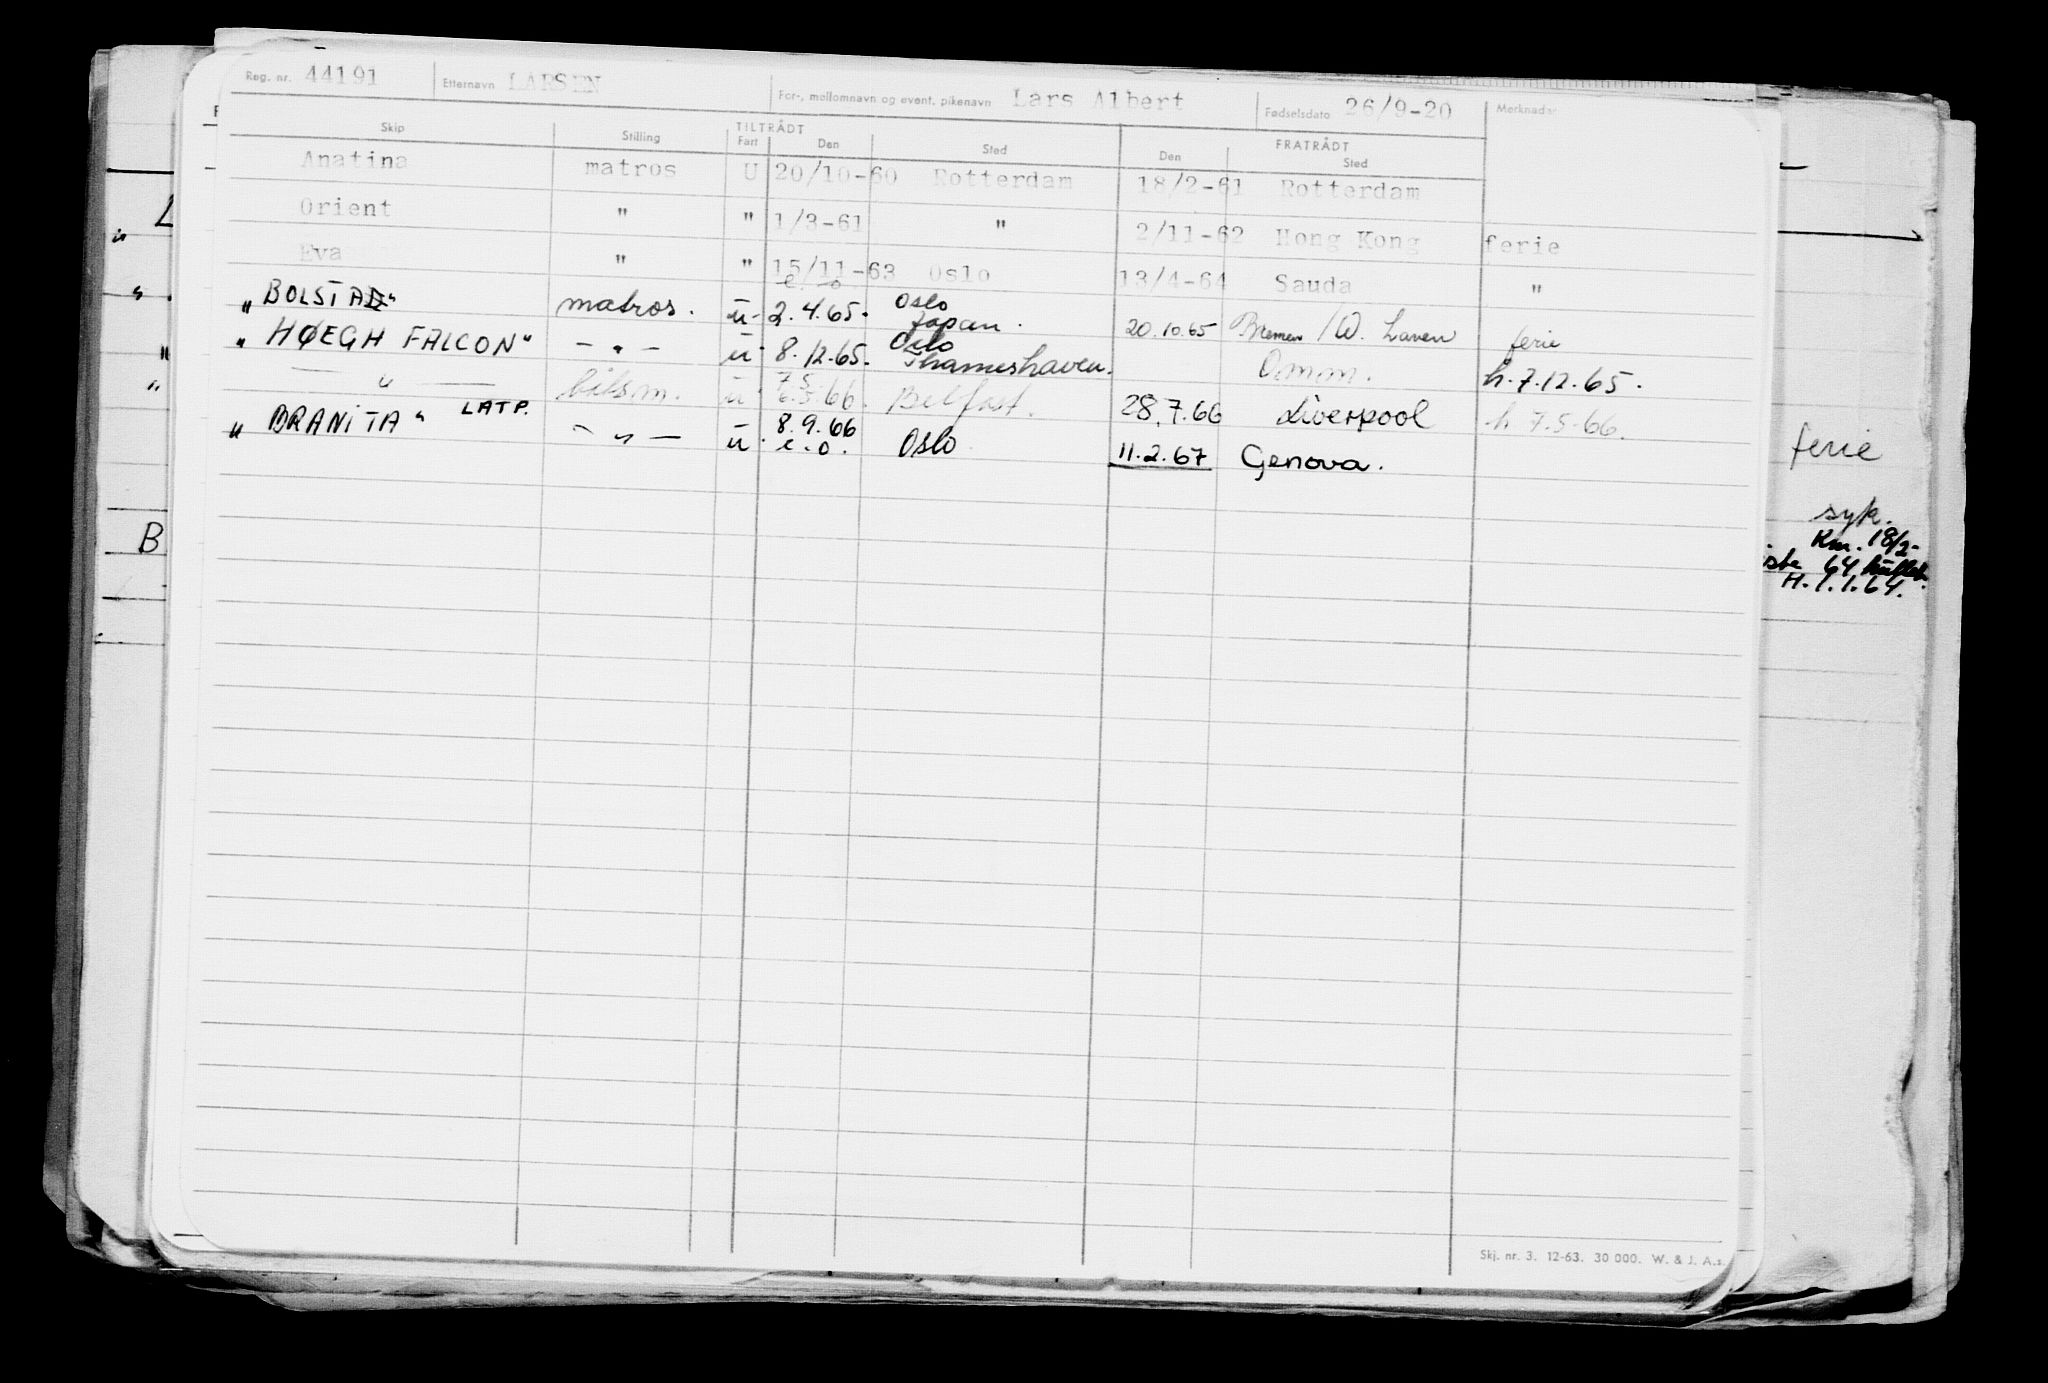 Reg. nr. 44191 Etternavn LARSEN For-, mellomnavn og event. pikenavn Lars Albert Fødselsdato 26/9-20 Merknader
TILTRÅDT FRATRÅDT
Skip Stilling Fart Den Sted Den Sted
Anatina matros U 20/10-60 Rotterdam 18/2-61 Rotterdam
Orient " " 1/3-61 " 2/11-62 Hong Kong ferie
Eva " " 15/11-63 Oslo 13/4-64 Sauda "
e. o. Oslo
"BOLSTAD" matros. u- 2.4.65. Japan. 20.10.65 Bremen /W. haven ferie
Oslo
"HØEGH FALCON" - " - u. 8.12.65. Thameshaven. Omm. h.7.12.65.
7.5.
— " — båtsm. u. 6.5.66. Belfast. 28.7.66 Liverpool h 7.5.66.
LATP. 8.9.66
"DRANITA" - " - u. e.o. Oslo 11.2.67 Genova.
ferie
syk.
Km. 18/2-
64
H. 1.1.64.
L
"
" .
"
"
B
Skj. nr. 3. 12-63. 30 000. W. & J. A.s.